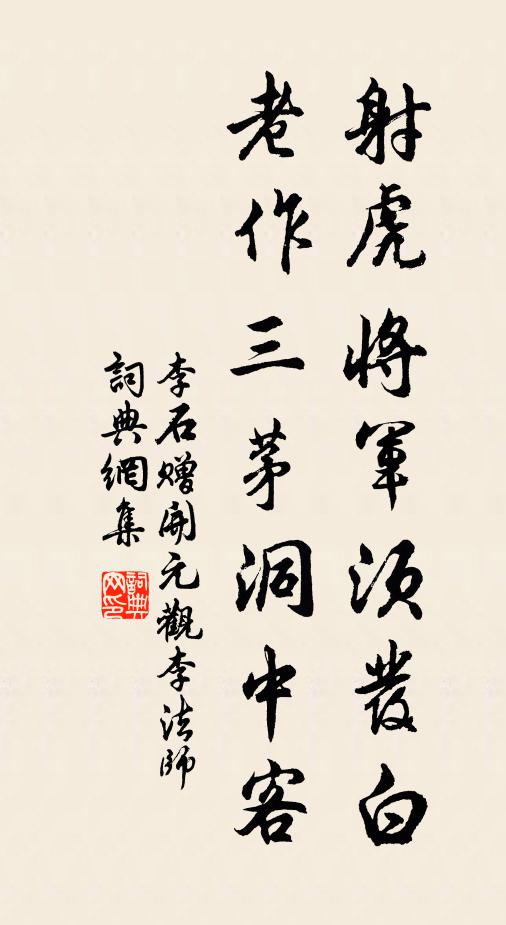 射虎將軍須發白
老作三茅洞中客
李石贈開元觀李法師
詞典網集
詞典网印